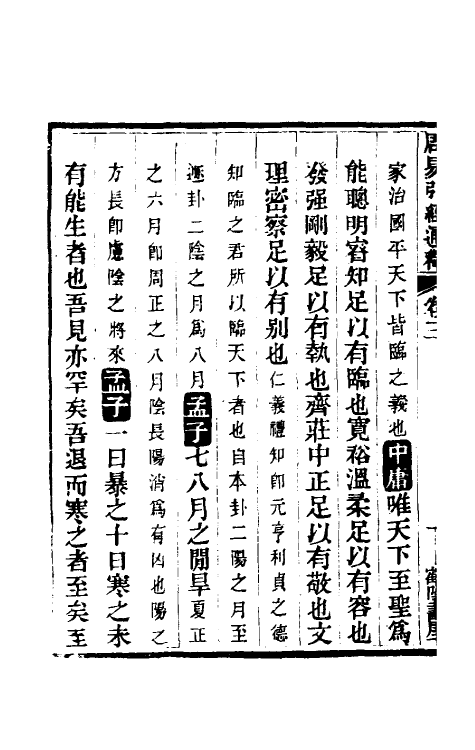 周易引經通釋 卷三
家治國平天下皆臨之義也中庸唯天下至聖爲
能聰明睿知足以有臨也寬裕溫柔足以有容也
發强剛毅足以有執也齊莊中正足以有敬也文
理密察足以有别也仁義禮知卽元亨利貞之德
知臨之君所以臨天下者也自本卦二陽之月至
遯卦二陰之月爲八月孟子七八月之閒旱夏正
之六月卽周正之八月陰長陽消爲有凶也陽之
方長卽慮陰之將來孟子一日暴之十日寒之未
有能生者也吾見亦罕矣吾退而寒之者至矣至